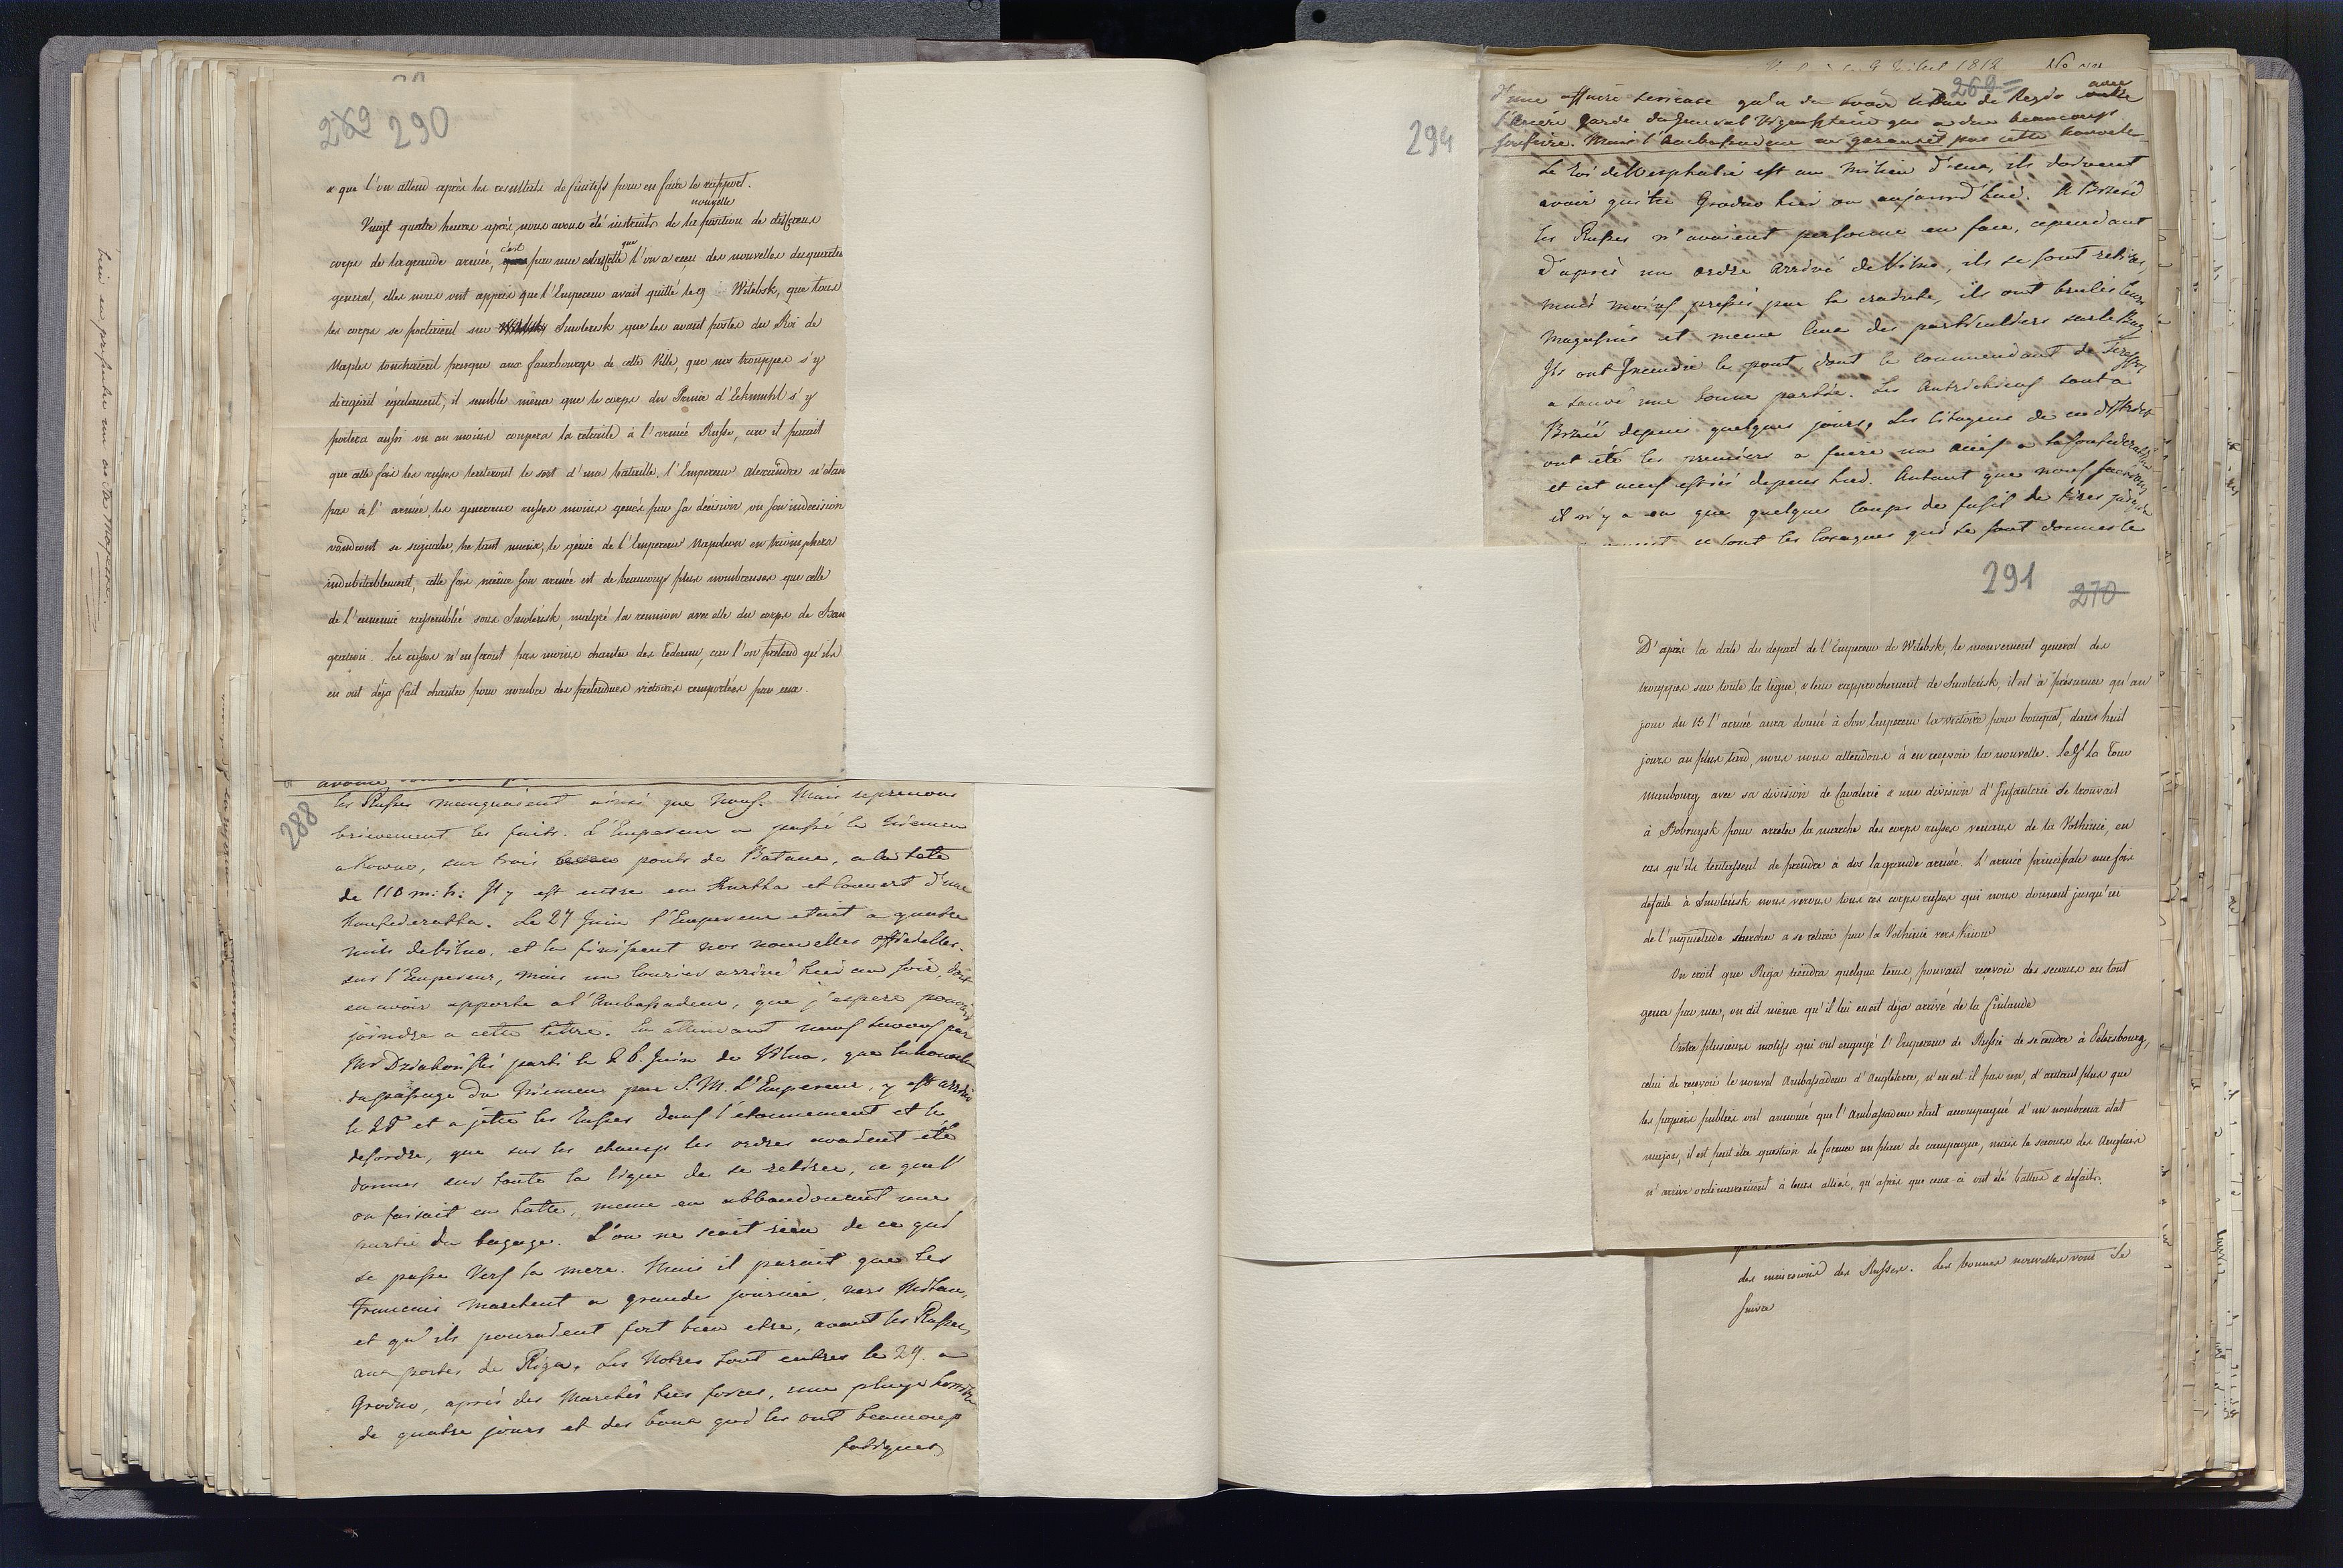 289 290
& que l'on attend après les resultats definitifs pour en faire le rapport.
Vingt quatre heures après, nous avons été instruits de la nouvelle position de differens
corps de la grande armée, c'est par une estafette que l'on a reçu des nouvelles du quartier
general, elles nous ont appris que l'Empereur avait quitté le 9 Witebsk, que tous
les corps se portaient sur Smolensk que les avant postes du Roi de
Naples touchaient presque aux fauxbourgs de cette Ville, que nos trouppes s'y
dirigeait également, il semble même que le corps du Prince d'Eckmuhl s'y
portera aussi ou au moins coupera la retraite à l'armée Russe, car il parait
que cette fois les russes tenteront le sort d'une bataille. l'Empereur Alexandre n'étan
pas à l'armée, les generaux russes moins genés par sa décision ou son indecision
voudront se signaler, tant mieux, le génie de l'Empereur Napoleon en triomphera
indubitablement, cette fois même son armée est de beaucoup plus nombreuse que celle
de l'ennemie rassemblée sous Smolensk, malgré la reunion avec elle du corps de Ban
gration. Les russes n'en feront pas moins chanter des Tedeum, car l'on pretend qu'ils
en ont déja fait chanter pour nombre des pretendues victoires remportées par eux.
288
les Russes manquaient ainsi que nous. Mais reprenons
brievement les faits. L'Empereur a passé le Niemen
a Kowno, sur trois ponts de Bateaux, a la tete
de 110 m: h: Il y est entré en Kurtka et couvert d'une
Konfederatka. Le 27 Juin l'Empereur etait a quatre
mils de Vilno, et la finissent nos nouvelles officielles.
sur l'Empereur, mais un Courier arrivé hier au soir, doit
en avoir apporté a l'Ambassadeur, que j'espere pouvoir
joindre a cette lettre. En attendant nous savons par
Mr parti le 26. Juin de Vilna, que la nouvelle
du passage du Niemen par S. M. L'Empereur, y est arrivé
le 25 et a jetté les Russes dans l'etonnement et le
desordre, que sur les champs les ordres avaient été
donnes sur toute la ligne de se retirer, ce qu'
on faisait en hatte, meme en abbandonnant une
partie du bagage. L'on ne scait rien de ce qui
se passe Vers la mere. Mais il parait que les
Francais marchent a grande journée, vers Mitau,
et qu'ils pouraient fort bien etre, avant les Russes,
aux portes de Riga. Les Notres sont entres le 29. a
Grodno, apres des Marches tres forces, une pluye horrible
de quatre jours et des boux qui les ont beaucoup
fatigues
bien en presenter un a Sa Majesté.
294
269
d'une affaire serieuse qu'a du avoir le Duc de Regio avec
l'Arriere garde du General Wigenstein qui a du beaucoup
soufrire. Mais l'Ambassadeur ne garantit pas cette nouvelle
Le Roi de Wesphalie est au milieu d'eux, ils doivent
avoir quitté Grodno hier ou aujourd'hui. A Brzesc
les Russes n'avaient personne en face, cependant
d'après un ordre arrivé de Vilno, ils se sont retires,
mais moins pressés par la crainte, ils ont brulés leurs
Magasins et meme ceux des particuliers sur le Bug
Ils ont Incendié le pont, dont le commendant de Terespol
a sauvé une bonne partie. Les Autrichiens sont a
Brzesc depuis quelques jours, Les Citoyens de ce district
ont été les premiers a faire un acces a la Confederation
et cet acces est ici depuis hier. Autant que nous sachions
il n'y a eu que quelques coups de fusil de tires jusqu'a
ce sont les Cosaques qui se sont donnes le
291 270
D'après la date du départ de l'Empereur de Witebsk, le mouvement general des
trouppes sur toute la ligne, & leur rapprochement de Smolensk, il est à présumer qu'au
jour du 15 l'armée aura donné à Son Empereur la victoire pour bouquet, dans huit
jours au plus tard, nous nous attendons à en reçevoir la nouvelle. Le Gl La Tour
Maubourg avec sa division de Cavalerie & une division d'Infanterie se trouvait
à Bobruysk pour arreter la marche des corps russes venans de la Volhinie, en
cas qu'ils tentassent de prendre à dos la grande armée. L'armée principale une fois
defaite à Smolensk nous verons tous ces corps russes qui nous donnent jusqu'ici
de l'inquietude chercher a se retirer par la Volhinie vers Kiiow
On croit que Riga tiendra quelque tems, pouvant reçevoir des secours en tout
genre par mer, on dit même qu'il lui en est déja arrivé de la Finlande
Entre plusieurs motifs qui ont engagé l'Empereur de Russie de se rendre à Petersbourg,
celui de reçevoir le nouvel Ambassadeur d'Angleterre, n'en est il pas un, d'autant plus que
les papiers publics ont annoncé que l'Ambassadeur était accompagné d'un nombreux etat
major, il est peut être question de former un plan de campagne, mais le secours des Anglais
n'arrive ordinairement à leurs alliés, qu'après que ceux-ci ont été battus & defaits.
des incursions des Russes. Les bonnes nouvelles vont se
suivre